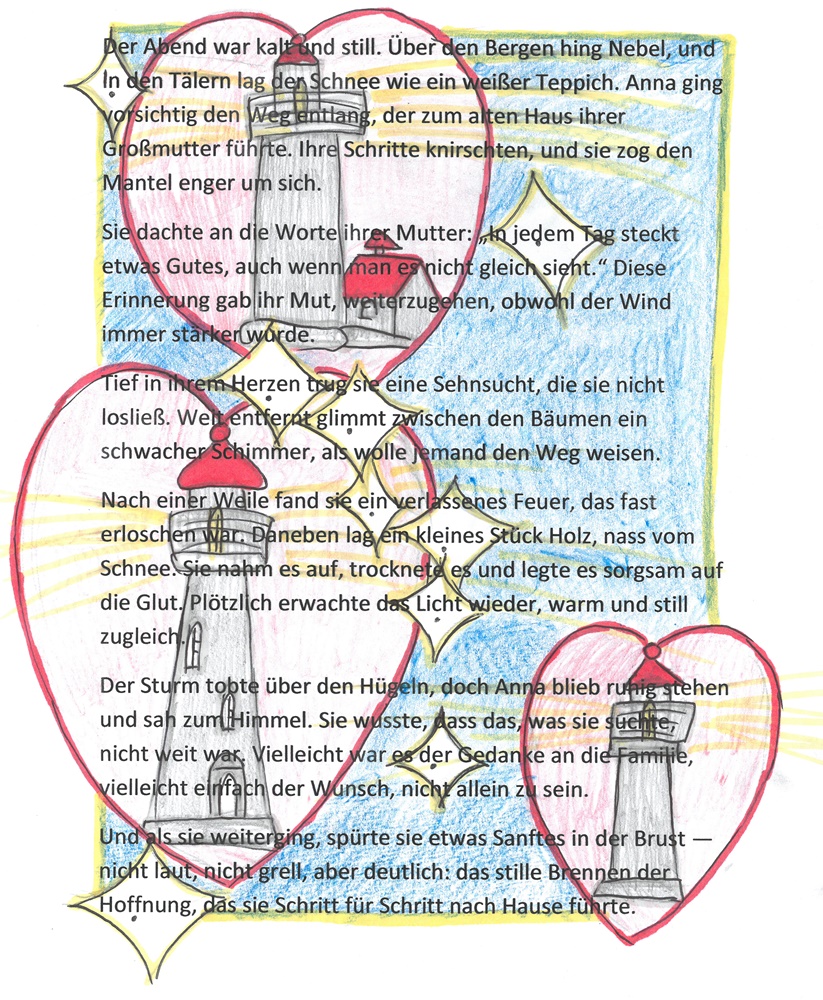 Der Abend war kalt und still. Über den Bergen hing Nebel, und
in den Tälern lag der Schnee wie ein weißer Teppich. Anna ging
vorsichtig den Weg entlang, der zum alten Haus ihrer
Großmutter führte. Ihre Schritte knirschten, und sie zog den
Mantel enger um sich.
Sie dachte an die Worte ihrer Mutter: „In jedem Tag steckt
etwas Gutes, auch wenn man es nicht gleich sieht.“ Diese
Erinnerung gab ihr Mut, weiterzugehen, obwohl der Wind
immer stärker wurde.
Tief in ihrem Herzen trug sie eine Sehnsucht, die sie nicht
losließ. Weit entfernt glimmt zwischen den Bäumen ein
schwacher Schimmer, als wolle jemand den Weg weisen.
Nach einer Weile fand sie ein verlassenes Feuer, das fast
erloschen war. Daneben lag ein kleines Stück Holz, nass vom
Schnee. Sie nahm es auf, trocknete es und legte es sorgsam auf
die Glut. Plötzlich erwachte das Licht wieder, warm und still
zugleich.
Der Sturm tobte über den Hügeln, doch Anna blieb ruhig stehen
und sah zum Himmel. Sie wusste, dass das, was sie suchte,
nicht weit war. Vielleicht war es der Gedanke an die Familie,
vielleicht einfach der Wunsch, nicht allein zu sein.
Und als sie weiterging, spürte sie etwas Sanftes in der Brust —
nicht laut, nicht grell, aber deutlich: das stille Brennen der
Hoffnung, das sie Schritt für Schritt nach Hause führte.